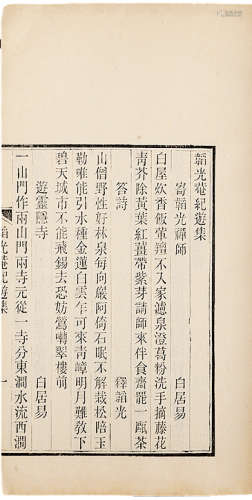 韜光菴紀遊集
寄韜光禪師　白居易
白屋炊香飯葷羶不入家濾泉澄葛粉洗手摘藤花
青芥除黃葉紅薑帶紫芽請師來伴食齋罷一甌茶
答詩　釋韜光
山僧野性好林泉每向巖阿倚石眠不解栽松陪玉
勒惟能引水種金蓮白雲乍可來青嶂明月難敎下
碧天城市不能飛錫去恐妨鶯囀翠樓前
遊靈隱寺　白居易
一山門作兩山門兩寺元從一寺分東澗水流西澗
韜光菴紀遊集　一